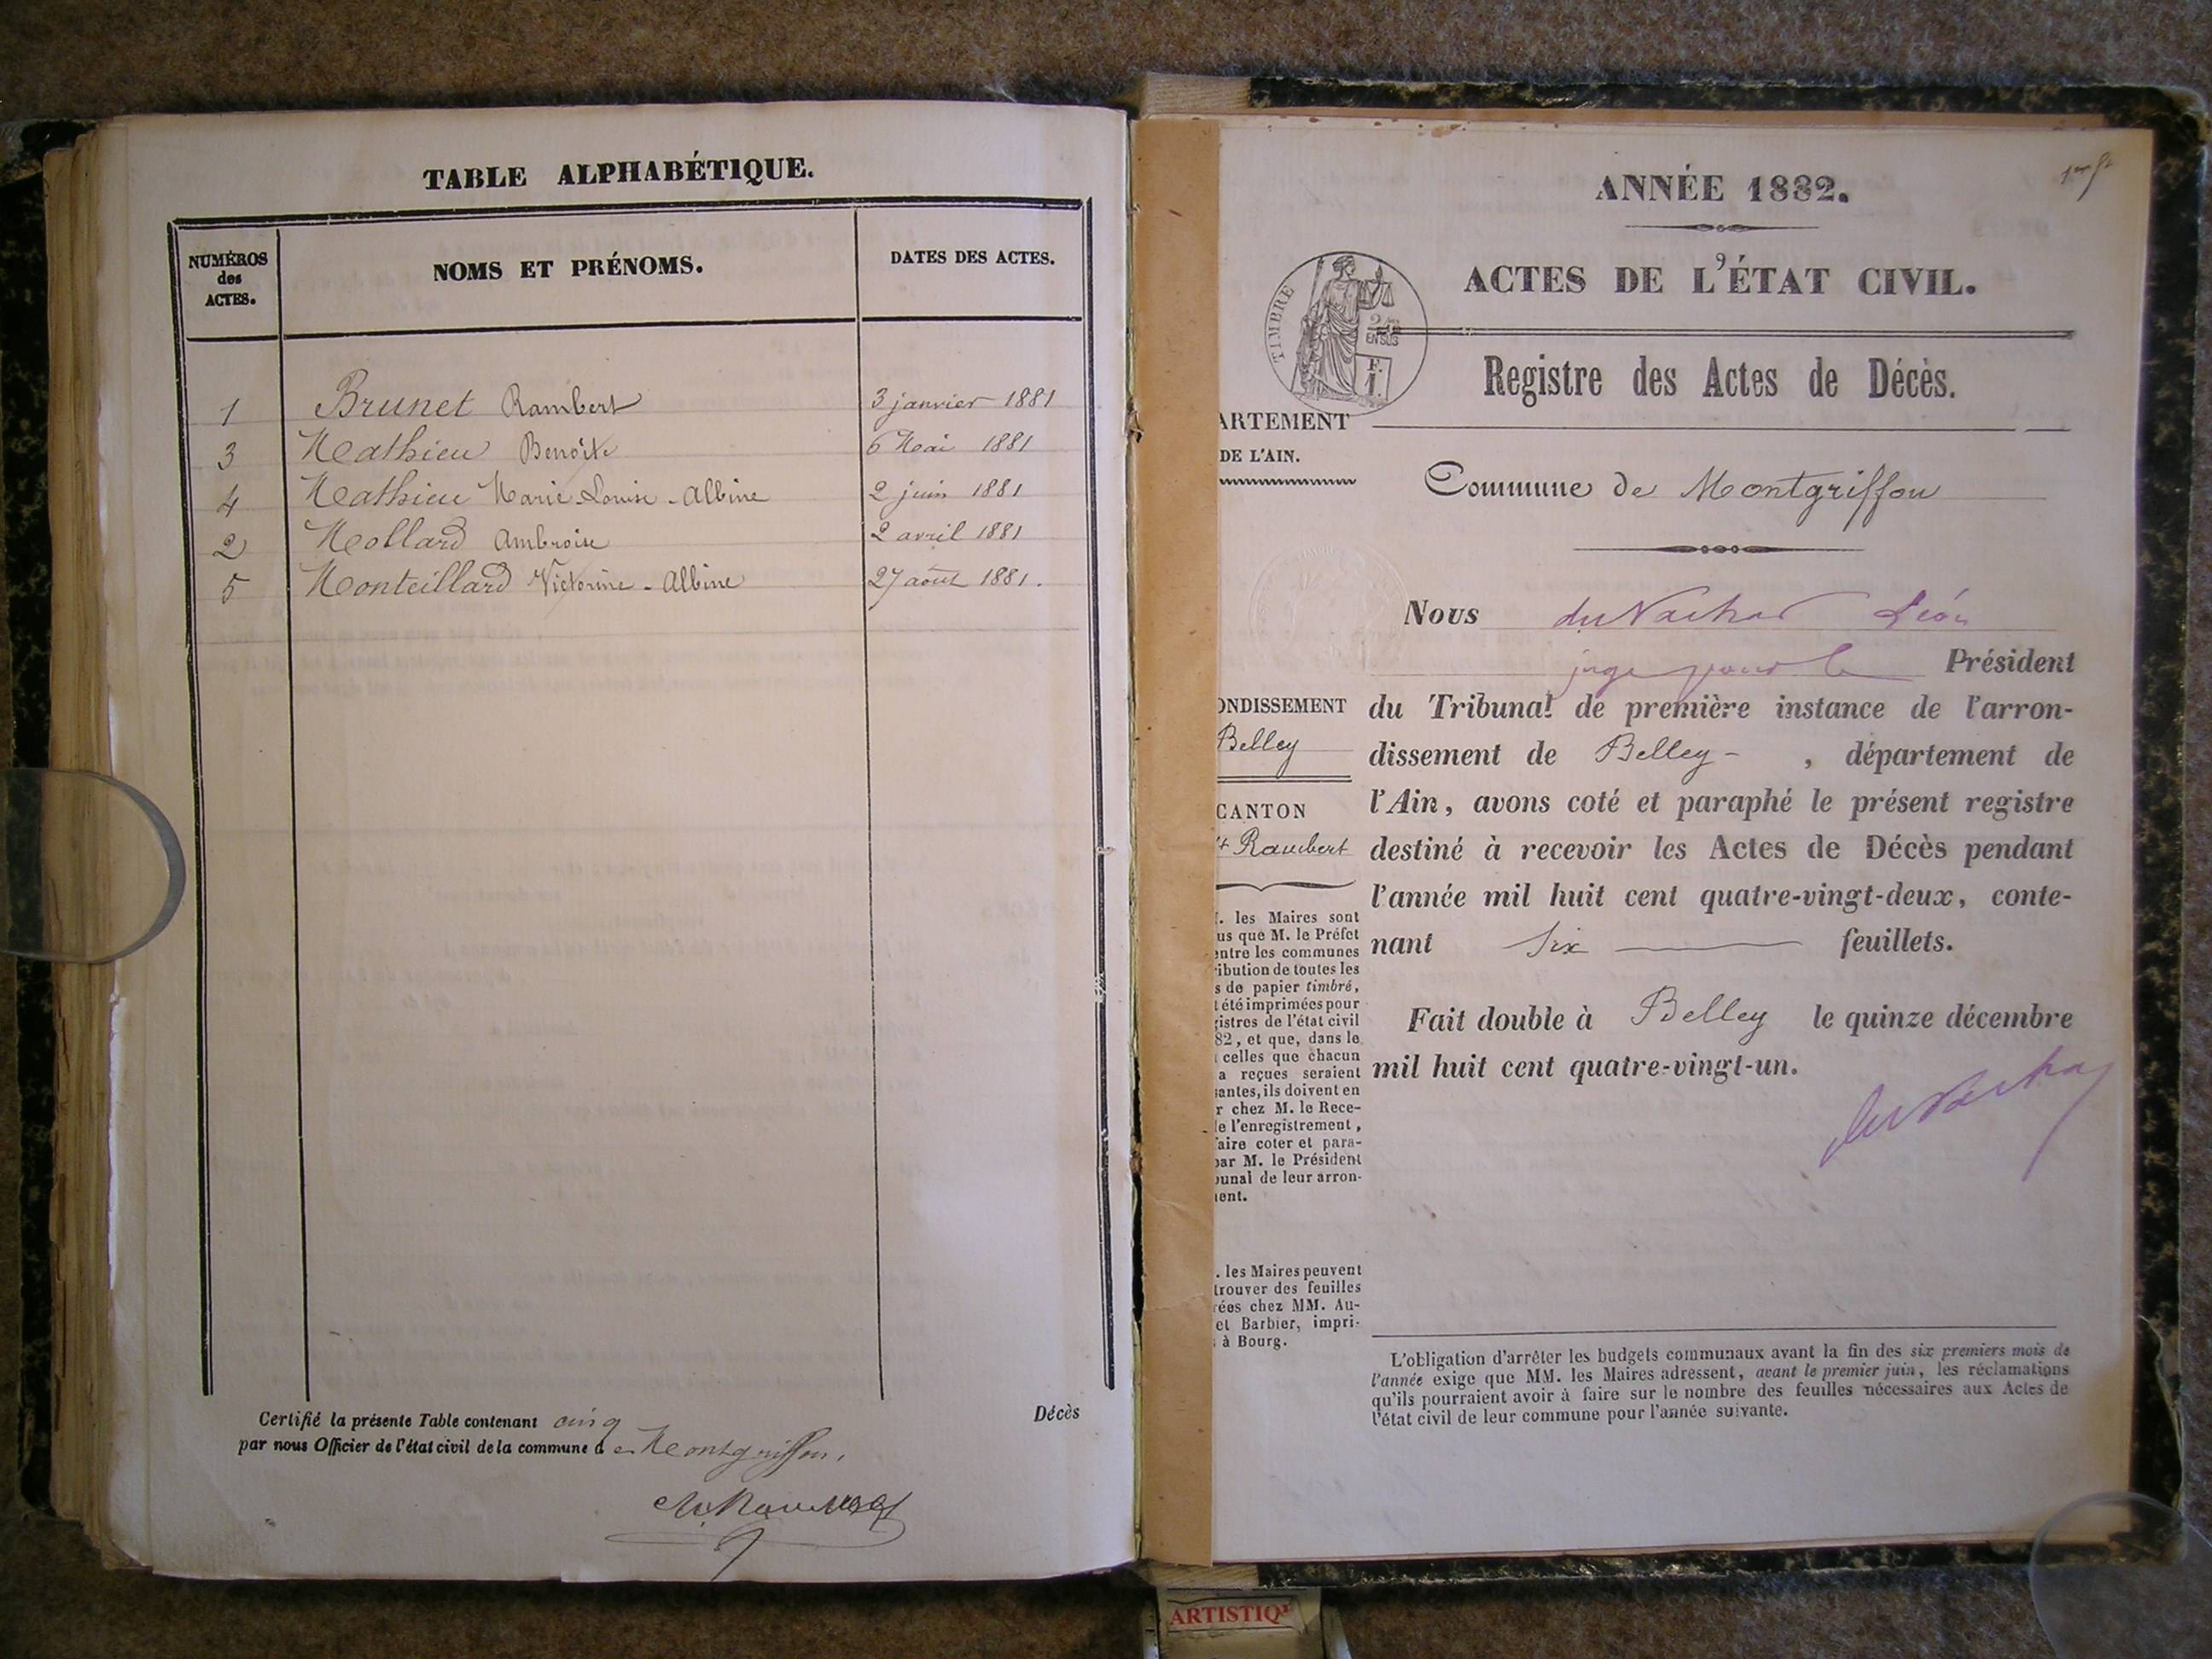 TABLE ALPHABÉTIQUE.
NUMÉROS des ACTES.
NOMS ET PRÉNOMS.
DATES DES ACTES.
1 Brunet Rambert 3 janvier 1881
3 Mathieu Benoite 6 Mai 1881
4 Mathieu Marie-Louise-Albine 2 juin 1881
2 Mollard Ambroise 2 avril 1881
5 Monteillard Victorine-Albine 27 août 1881.
Certifié la présente Table contenant cinq Décès
par nous Officier de l'état civil de la commune de Montgriffon.
ANNÉE 1882.
ACTES DE L'ÉTAT CIVIL.
TIMBRE
EN SUS
F.
1.
Registre des Actes de Décès.
ARTEMENT
DE L'AIN.
Commune de Montgriffon
Nous Léon
juge pour le Président
du Tribunal de première instance de l'arron-
dissement de Belley - , département de
l'Ain, avons coté et paraphé le présent registre
destiné à recevoir les Actes de Décès pendant
l'année mil huit cent quatre-vingt-deux, conte-
nant six feuillets.
Fait double à Belley le quinze décembre
mil huit cent quatre-vingt-un.
ONDISSEMENT
Belley
CANTON
St Rambert
. les Maires sont
us que M. le Préfet
entre les communes
ribution de toutes les
s de papier timbré,
t été imprimées pour
gistres de l'état civil
82, et que, dans le
celles que chacun
a reçues seraient
santes, ils doivent en
r chez M. le Rece-
de l'enregistrement,
faire coter et para-
par M. le Président
bunal de leur arron-
ment.
. les Maires peuvent
trouver des feuilles
rées chez MM. Au-
et Barbier, impri-
à Bourg.
L'obligation d'arrêter les budgets communaux avant la fin des six premiers mois de
l'année exige que MM. les Maires adressent, avant le premier juin, les réclamations
qu'ils pourraient avoir à faire sur le nombre des feuilles nécessaires aux Actes de
l'état civil de leur commune pour l'année suivante.
ARTISTIQ